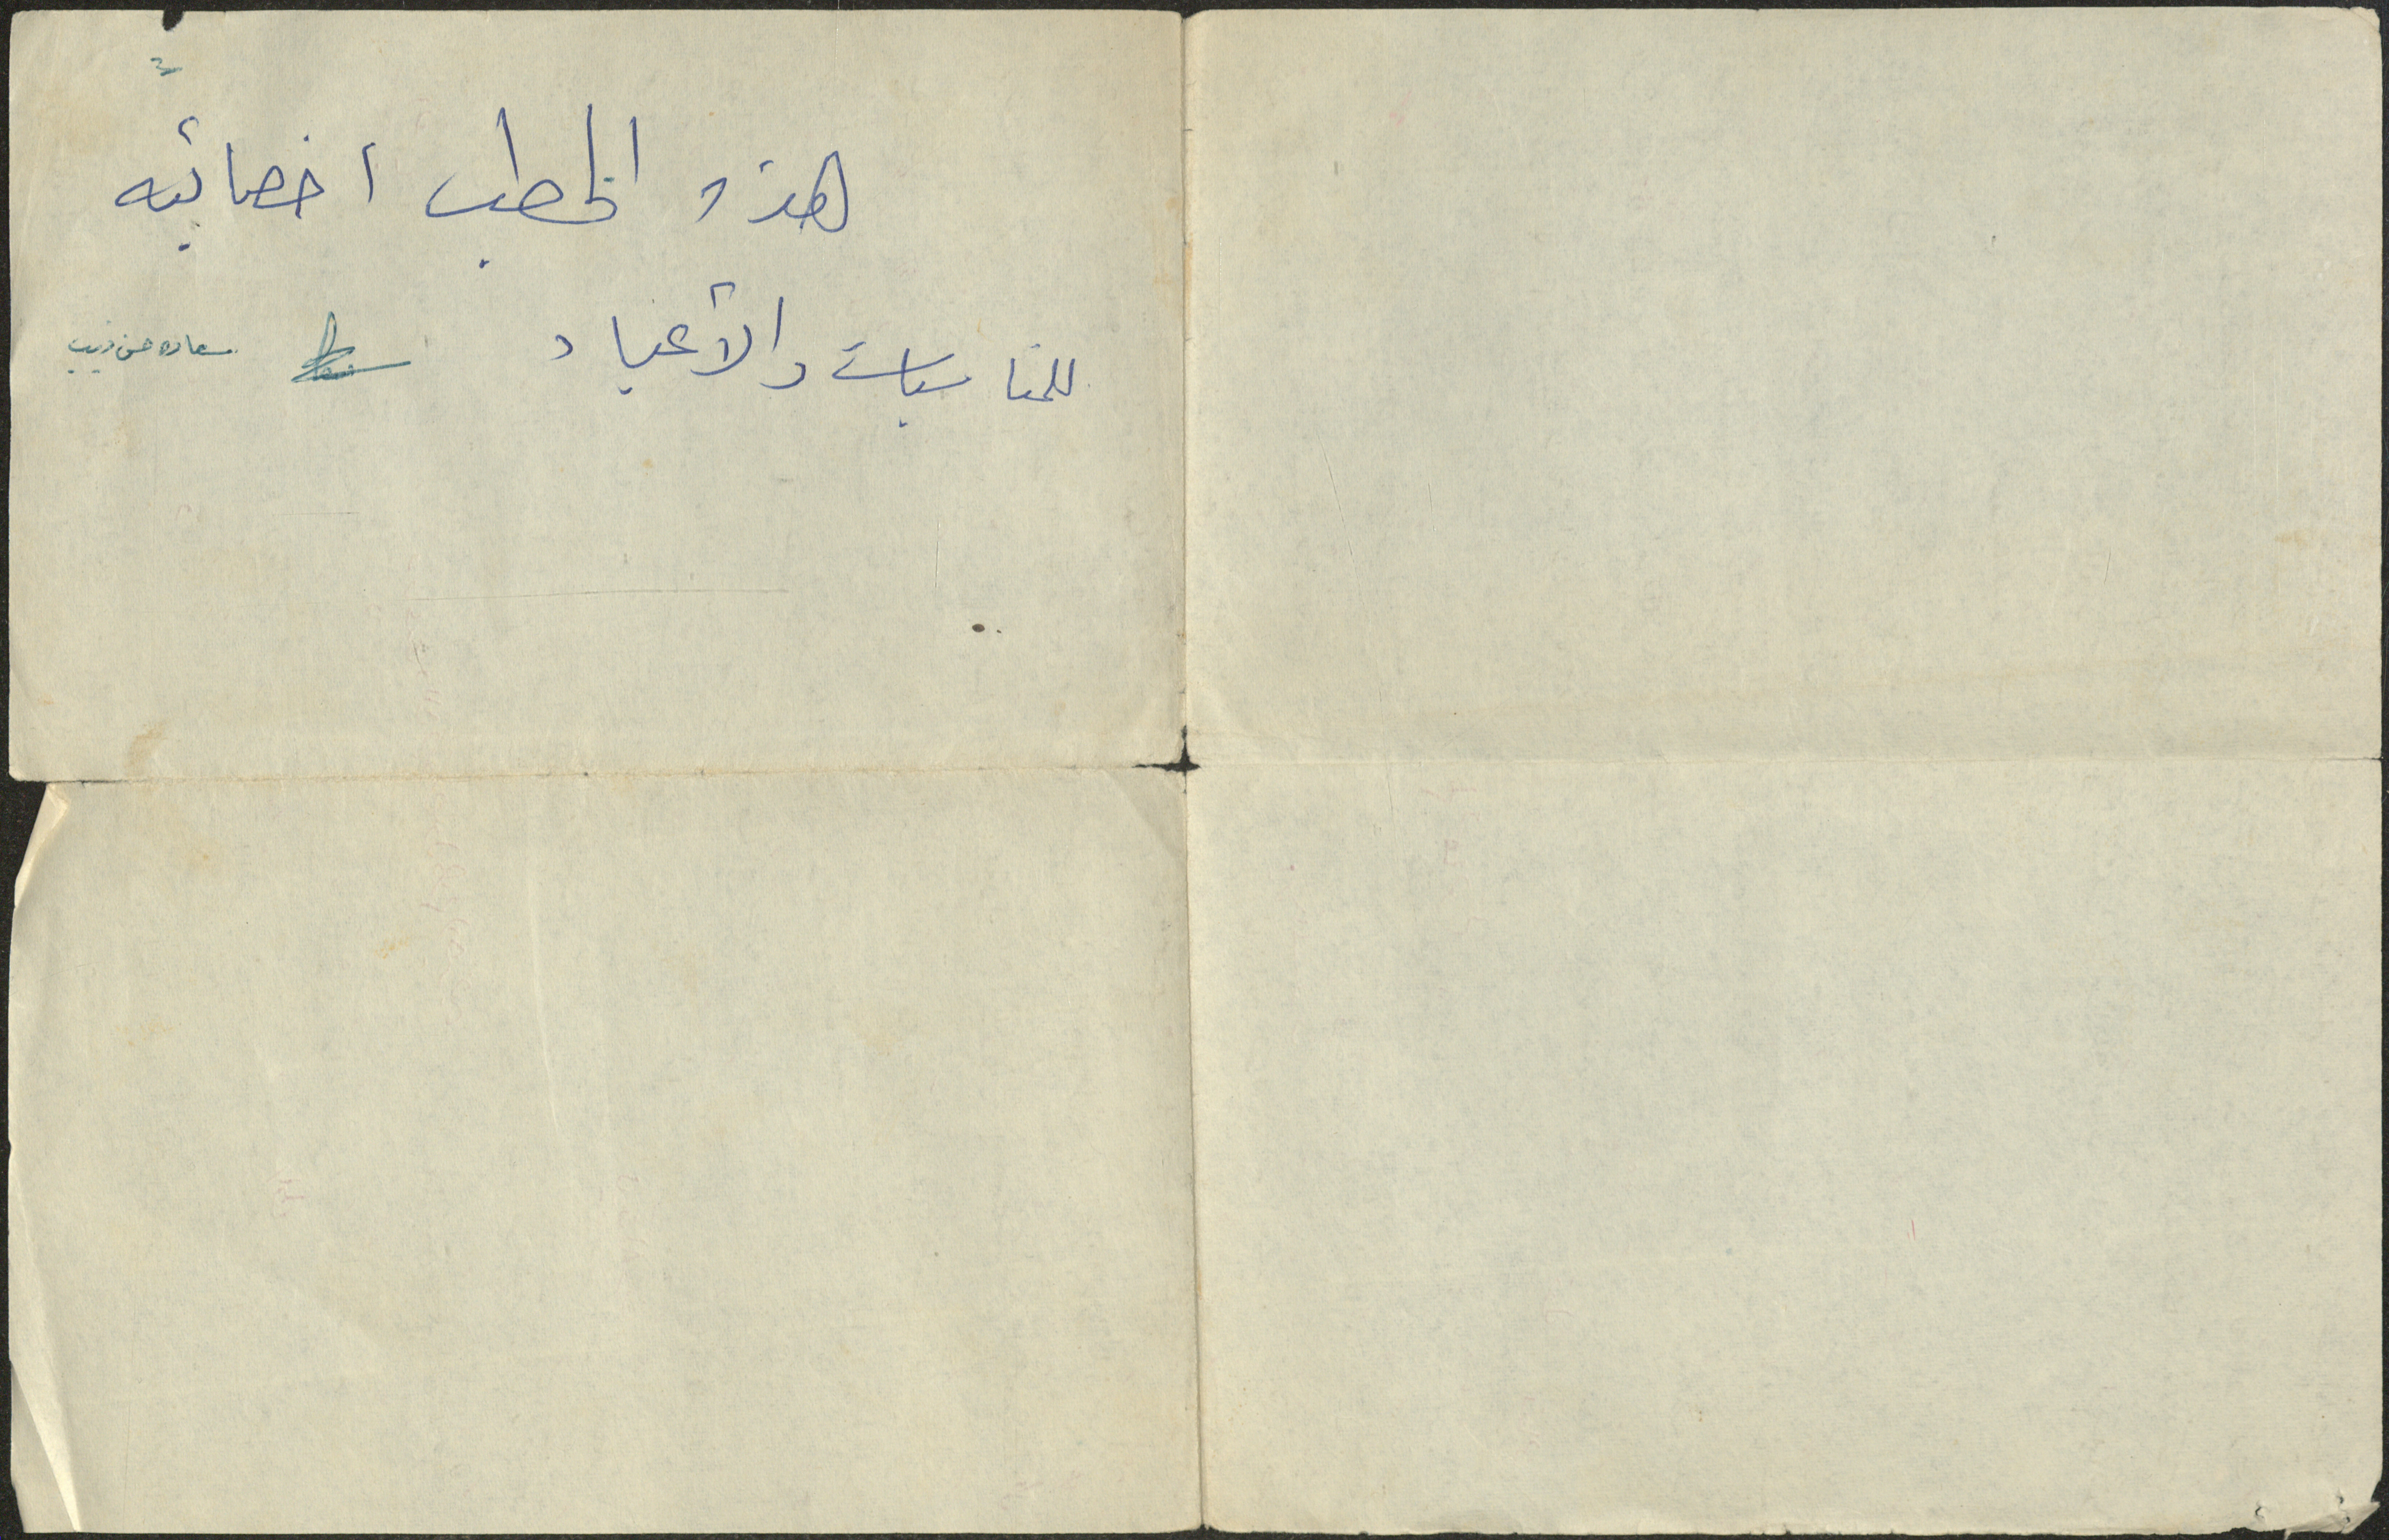 هذه الخطب اخصائيه
للمناسبات والأعياد
سعاده حسن ذيب